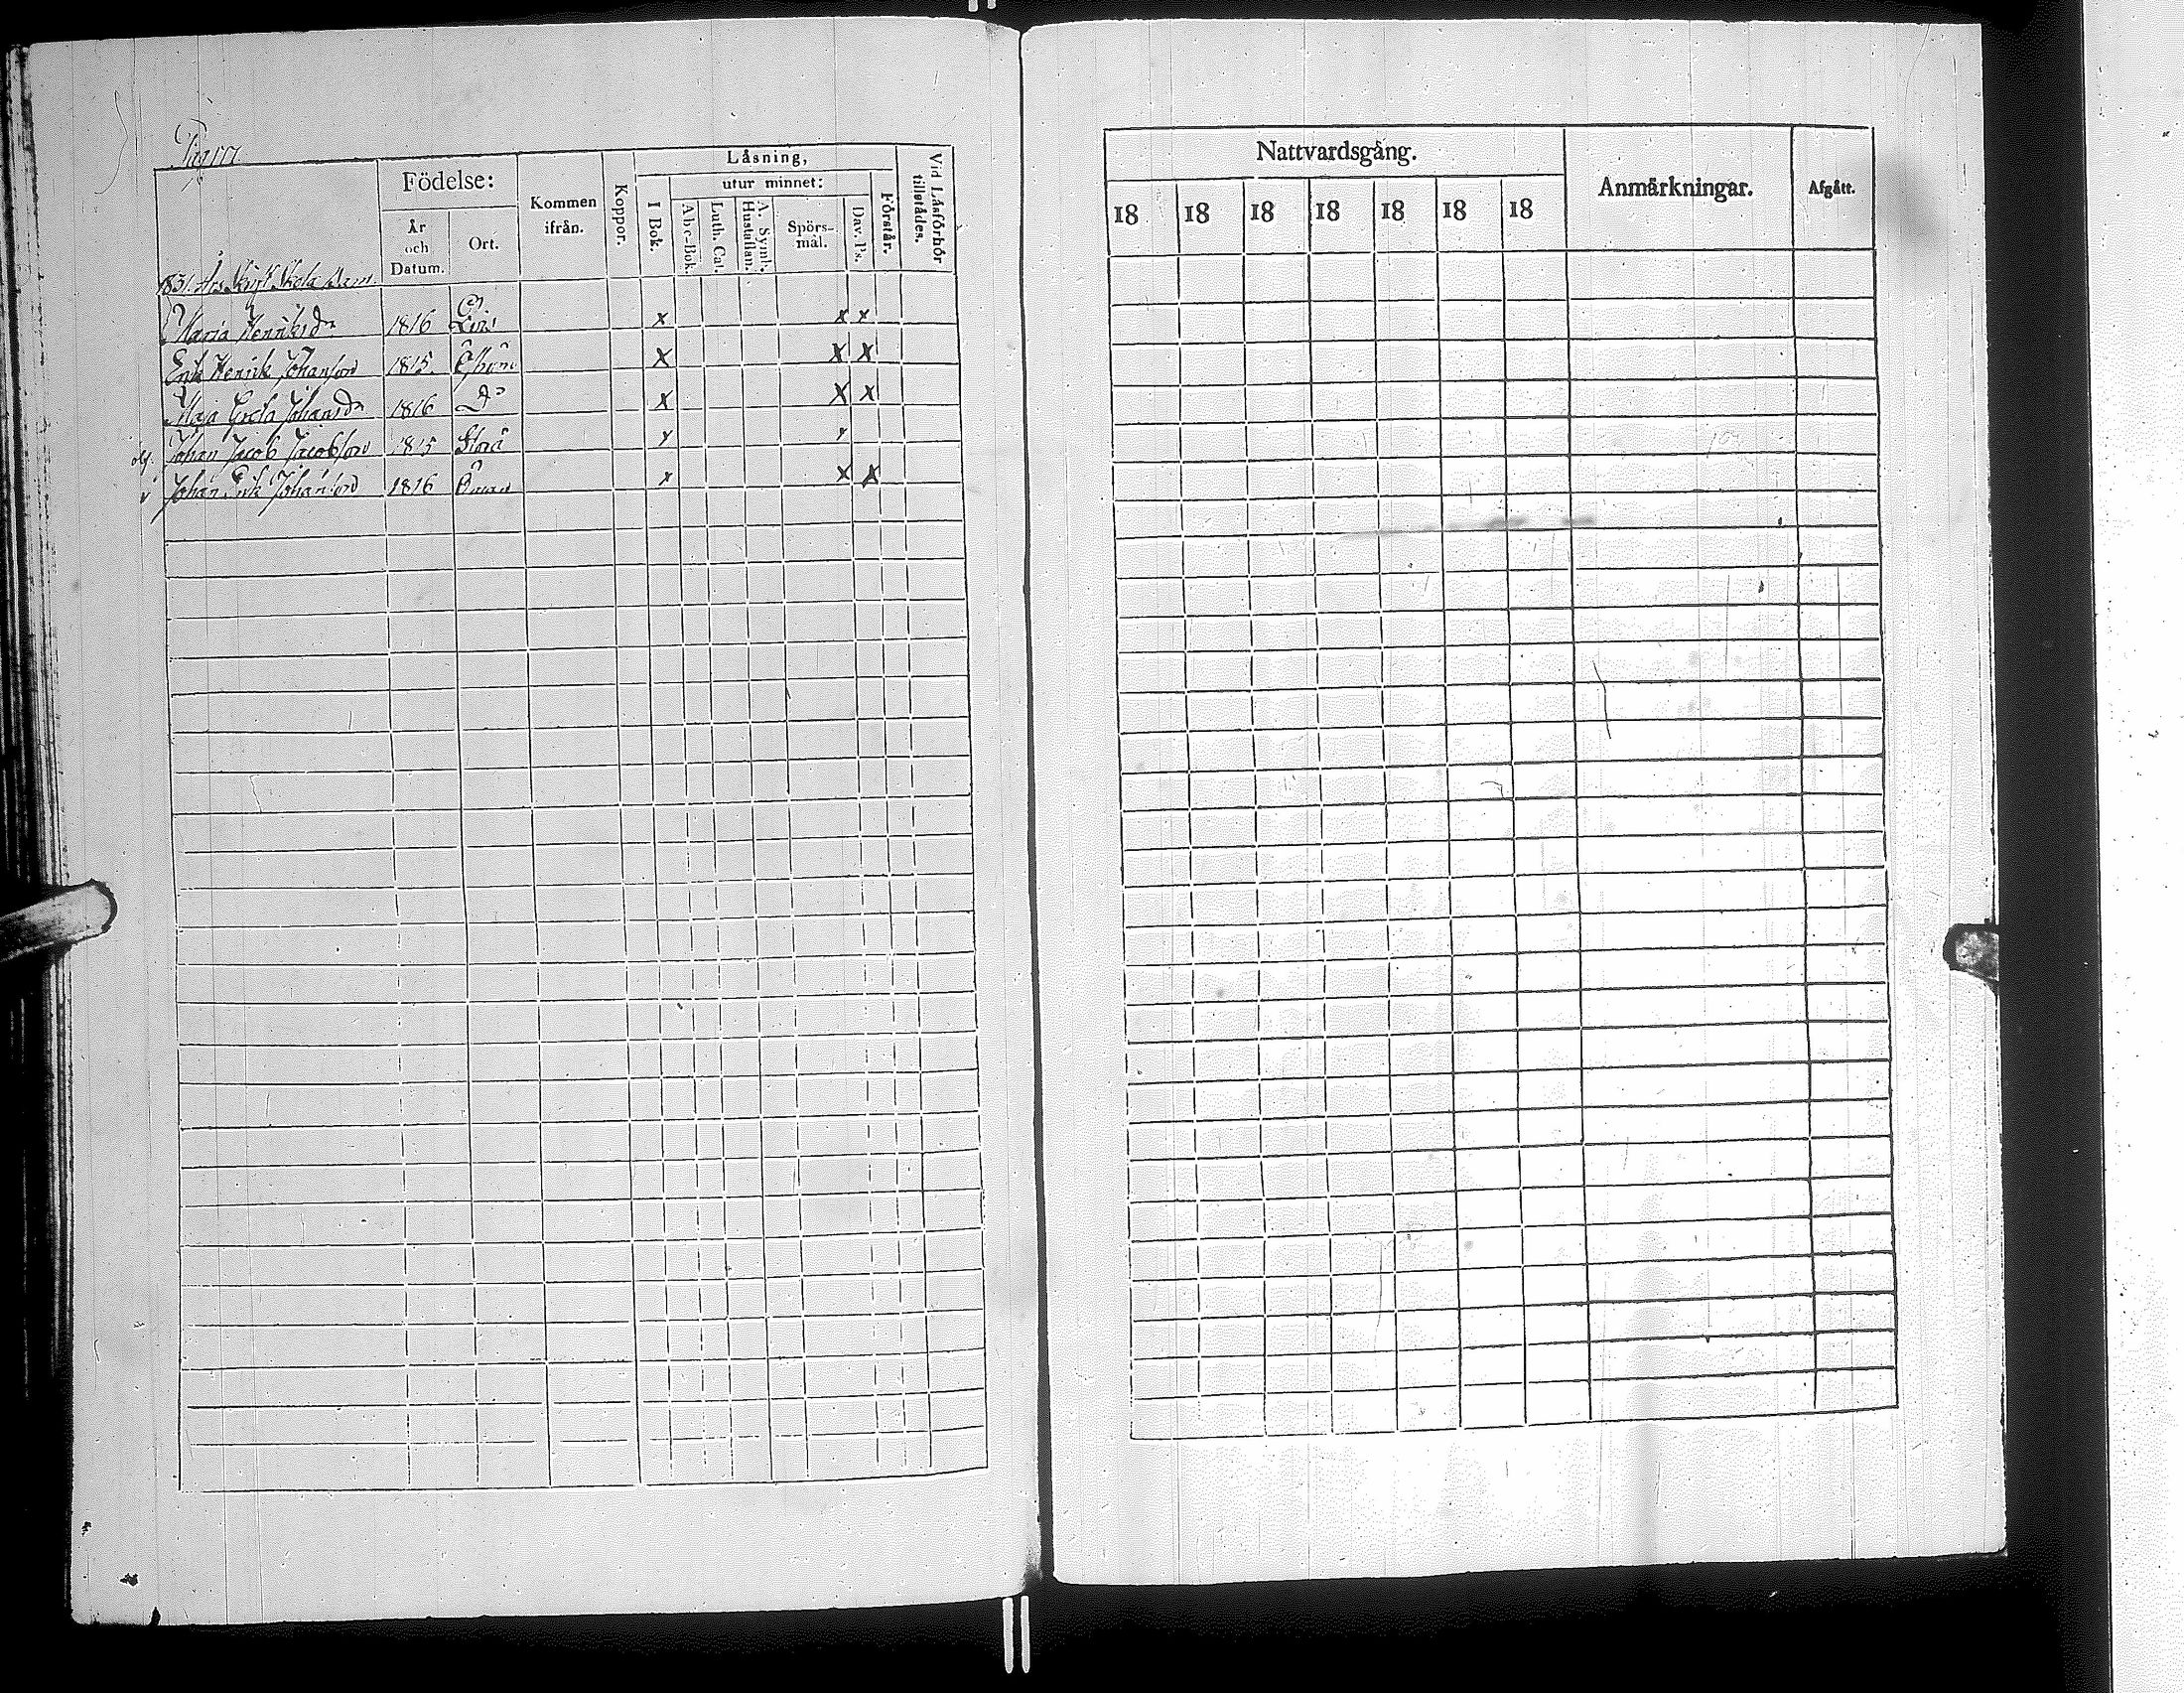 Pag 177.
Födelse:
År och Datum.
Ort.
Kommen ifrån.
Koppor.
Låsning,
I Bok.
utur minnet:
Abc-Bok.
Luth. Cat.
A. Symb. Hustaflan.
Spörs-mål.
Dav. Ps.
Förstår.
Vid Låsförhör tillstådes.
1831 Års Skrift Skola Barn
Maria Henriksdr 1816 x x x
Erik Henrik Johansson 1815 x x x
Maja Greta Johansdr 1816 Do x x x
Johan Jacob Jacobsson 1815 Storå x x
v Johan Erik Johansson 1816 x x x
Nattvardsgång.
Anmärkningar.
Afgått.
18 18 18 18 18 18 18